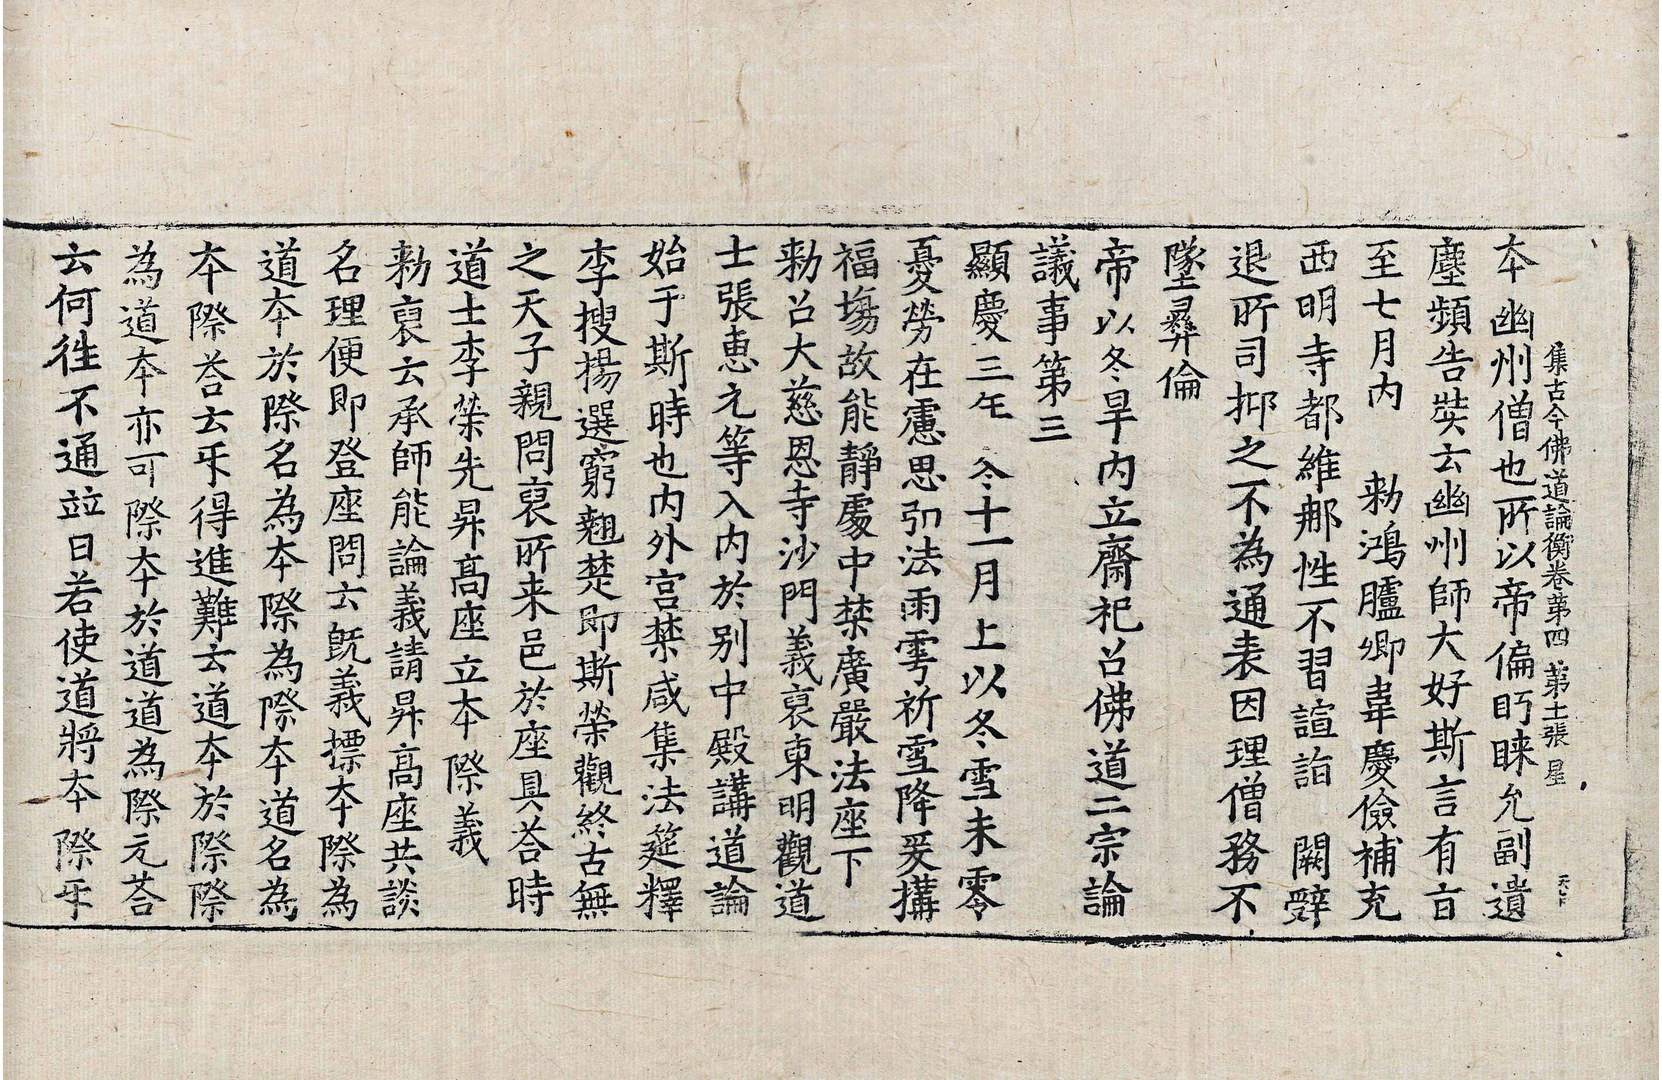 集古今佛道論衡卷第四 第十張 星
本幽州僧也所以帝偏眄睞允副遺
塵頻告奘云幽州師大好斯言有㫖
至七月内 勅鴻臚卿韋慶儉補充
西明寺都維那性不習諠詣 闕辝
退所司抑之不為通表因理僧務不
墜彛倫
帝以冬旱内立齋祀召佛道二宗論
議事第三
顯慶三年 冬十一月上以冬雪未零
憂勞在慮思弘法雨雩祈雪降爰搆
福塲故能靜處中禁廣嚴法座下
勅召大慈恩寺沙門義褒東明觀道
士張惠元等入内於别中殿講道論
始于斯時也内外宫禁咸集法筵釋
李搜揚選窮翹楚即斯榮觀終古無
之天子親問褒所来邑於座具荅時
道士李榮先昇高座立本際義
勅褒云承師能論義請昇高座共談
名理便即登座問云旣義摽本際為
道本於際名為本際為際本道名為
本際荅云㸦得進難云道本於際際
為道本亦可際本於道道為際元荅
云何徃不通竝曰若使道將本際㸦